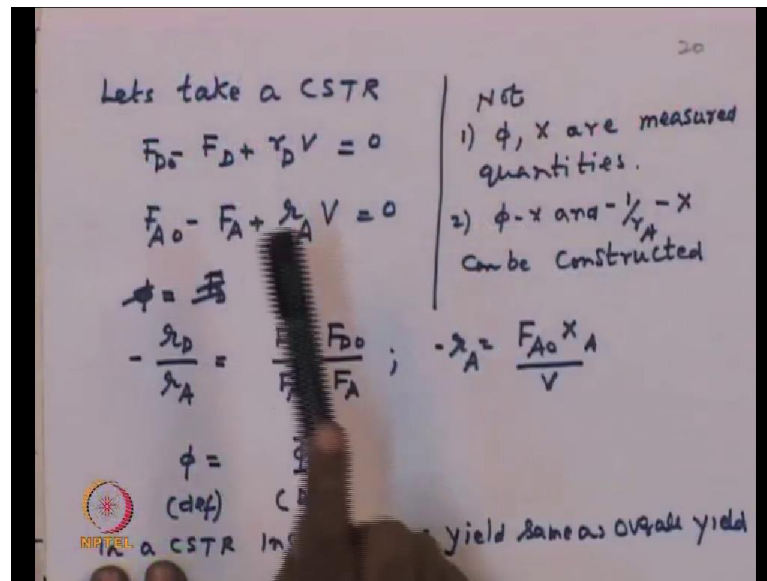 20
Lets take a CSTR
F_D0 - F_D + r_D V = 0
F_A0 - F_A + r_A V = 0
- r_D / r_A = F_D0 / F_A ; - r_A = F_A0 X_A / V
φ =
(def) (
In a CSTR yield same as overall yield
Not
1) φ, X are measured
quantities.
2) φ-X and -1/r_A - X
can be constructed
NPTEL